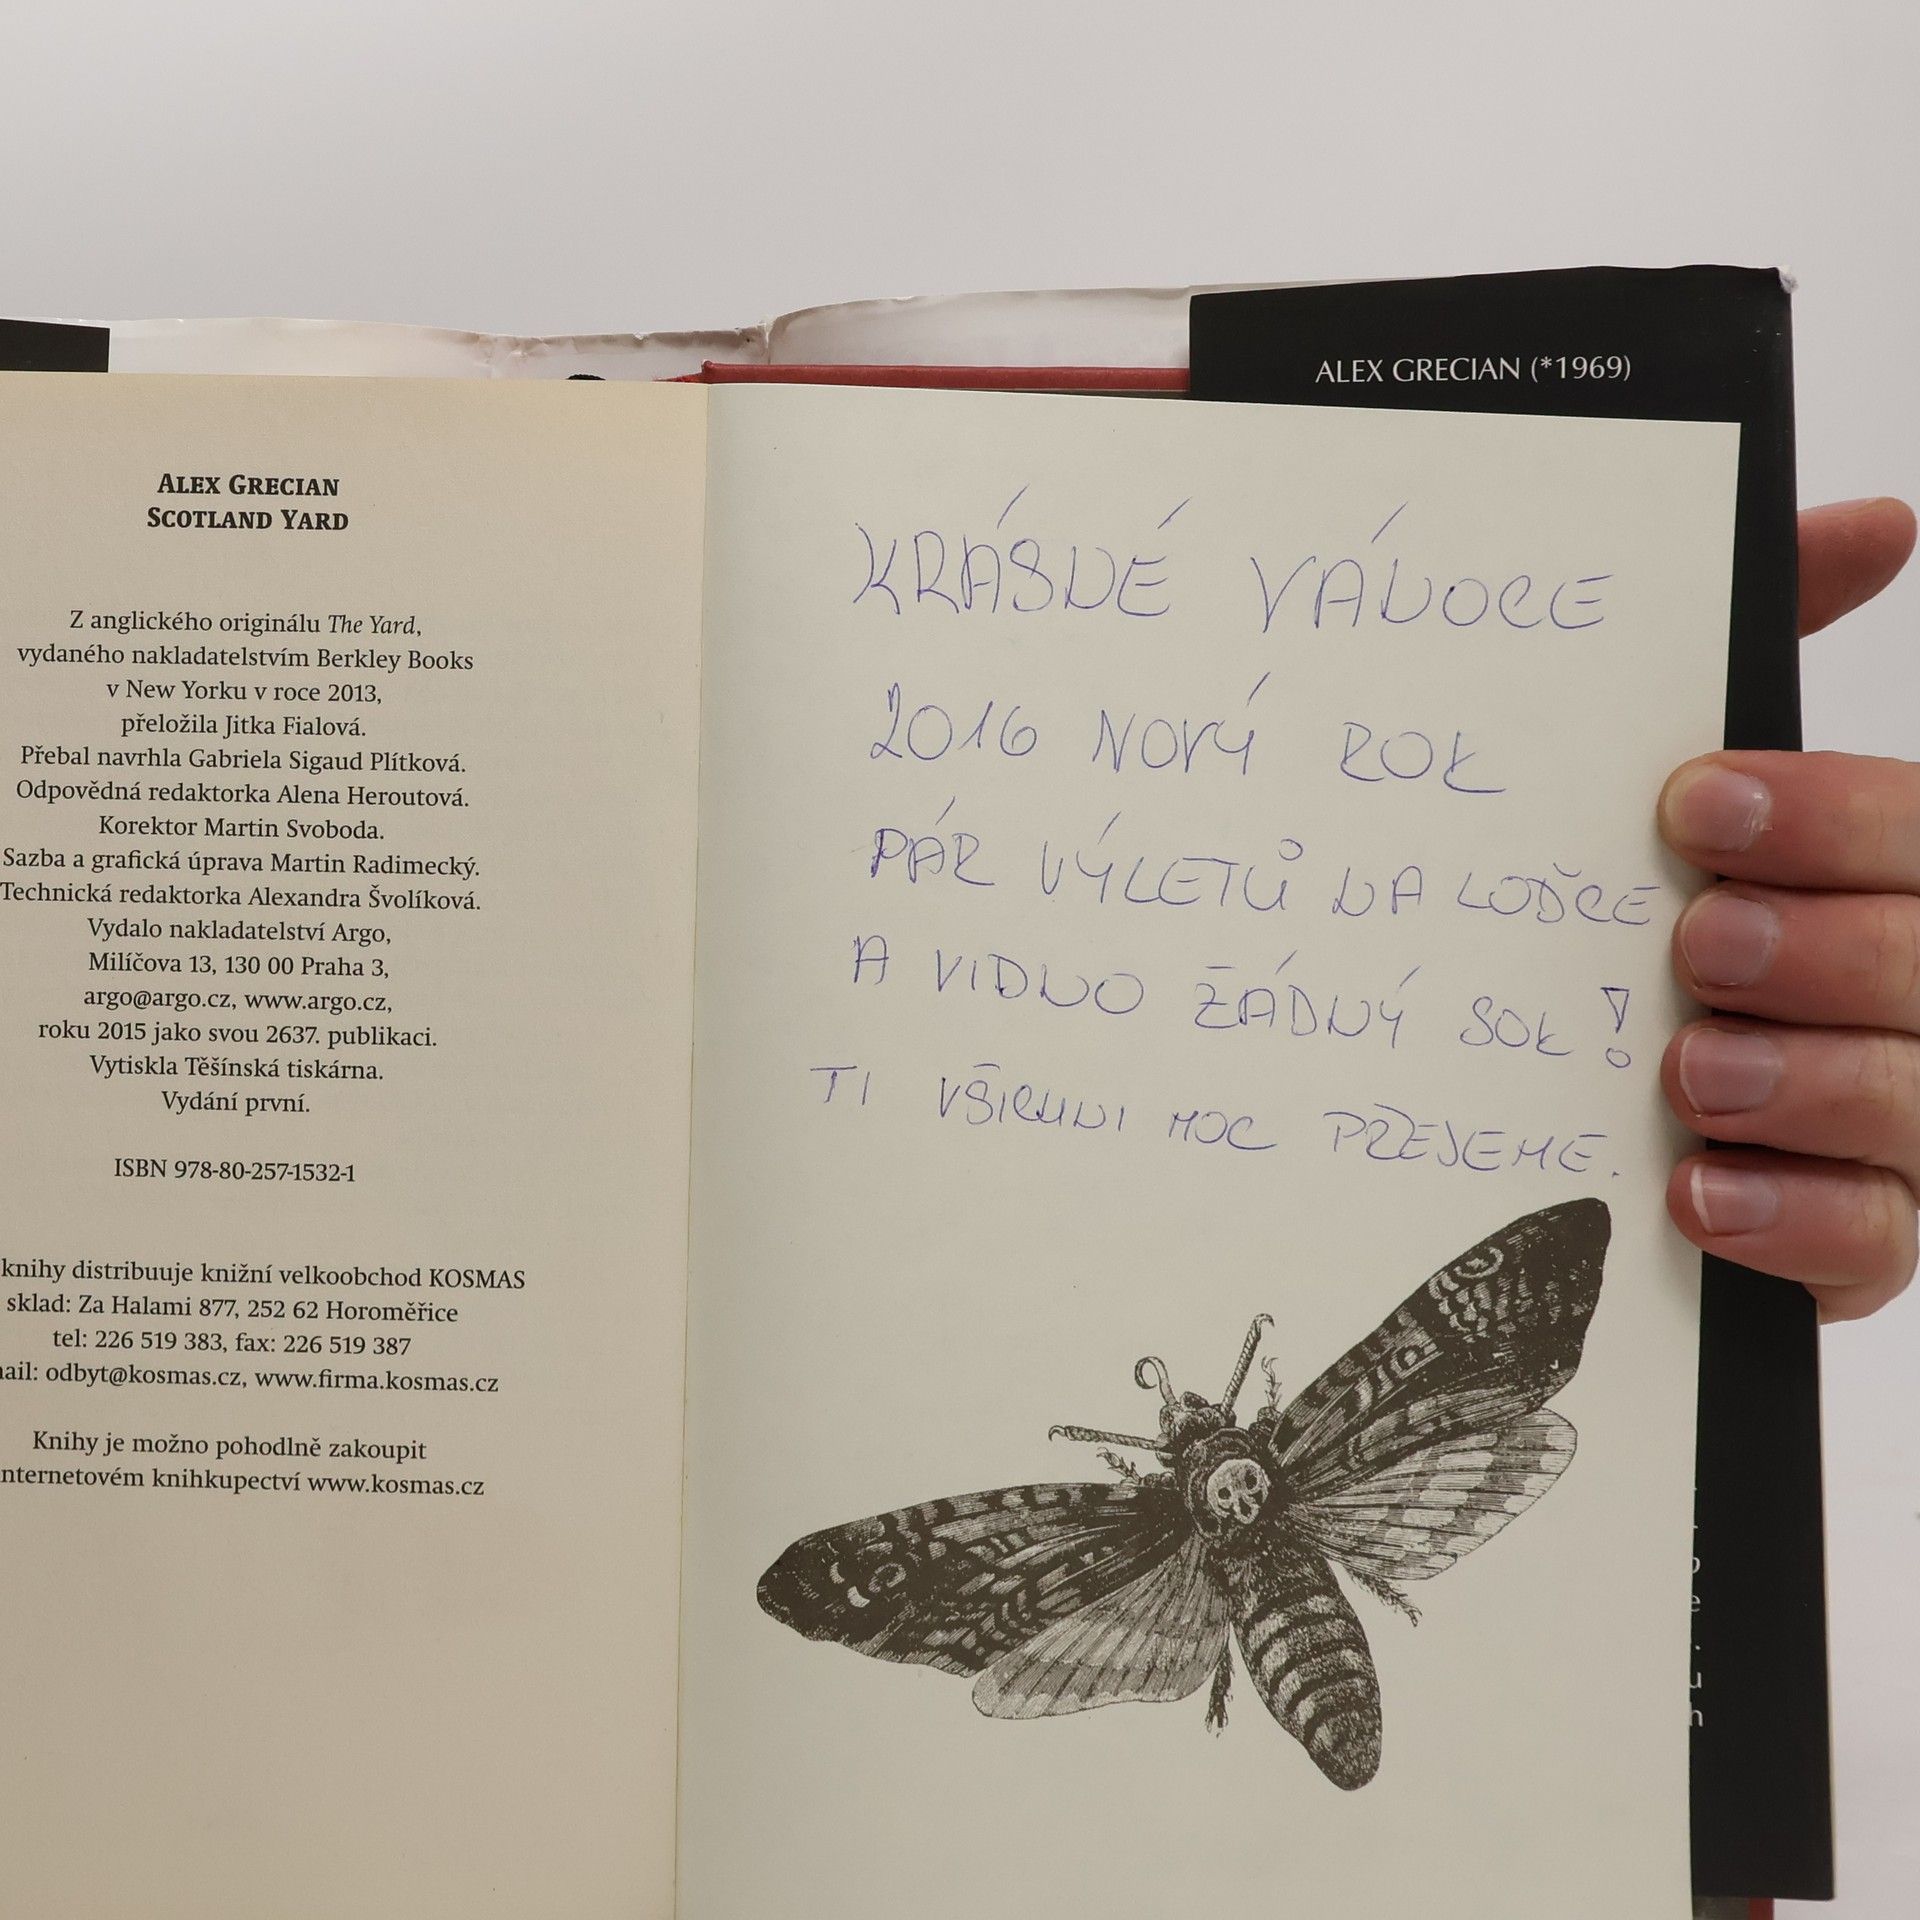 ALEX GRECIAN (*1969)
ALEX GRECIAN
SCOTLAND YARD
Z anglického originálu The Yard,
vydaného nakladatelstvím Berkley Books
v New Yorku v roce 2013,
přeložila Jitka Fialová.
Přebal navrhla Gabriela Sigaud Plítková.
Odpovědná redaktorka Alena Heroutová.
Korektor Martin Svoboda.
Sazba a grafická úprava Martin Radimecký.
Technická redaktorka Alexandra Švolíková.
Vydalo nakladatelství Argo,
Milíčova 13, 130 00 Praha 3,
argo@argo.cz, www.argo.cz,
roku 2015 jako svou 2637. publikaci.
Vytiskla Těšínská tiskárna.
Vydání první.
ISBN 978-80-257-1532-1
knihy distribuuje knižní velkoobchod KOSMAS
sklad: Za Halami 877, 252 62 Horoměřice
tel: 226 519 383, fax: 226 519 387
odbyt@kosmas.cz, www.firma.kosmas.cz
Knihy je možno pohodlně zakoupit
knihkupectví www.kosmas.cz
KRÁSNÉ VÁNOCE
2016 NOVÝ ROK
PÁR VÝLETŮ NA LOĎCE
A VIDNO ŽÁDNÝ SOK!
TI VŠICHNI MOC PŘEJEME.